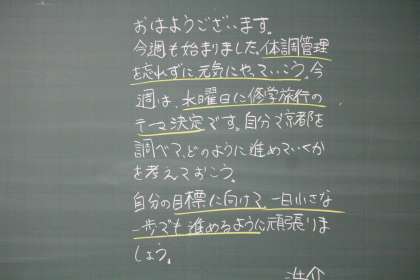 おはようございます。
今週も始まりました。体調管理
を忘れずに元気にやっていこう。今
週は、水曜日に修学旅行の
テーマ決定です。自分で京都を
調べて、どのように進めていくか
を考えておこう。
自分の目標に向けて、一日小さな
一歩でも進めるように頑張りま
しょう。